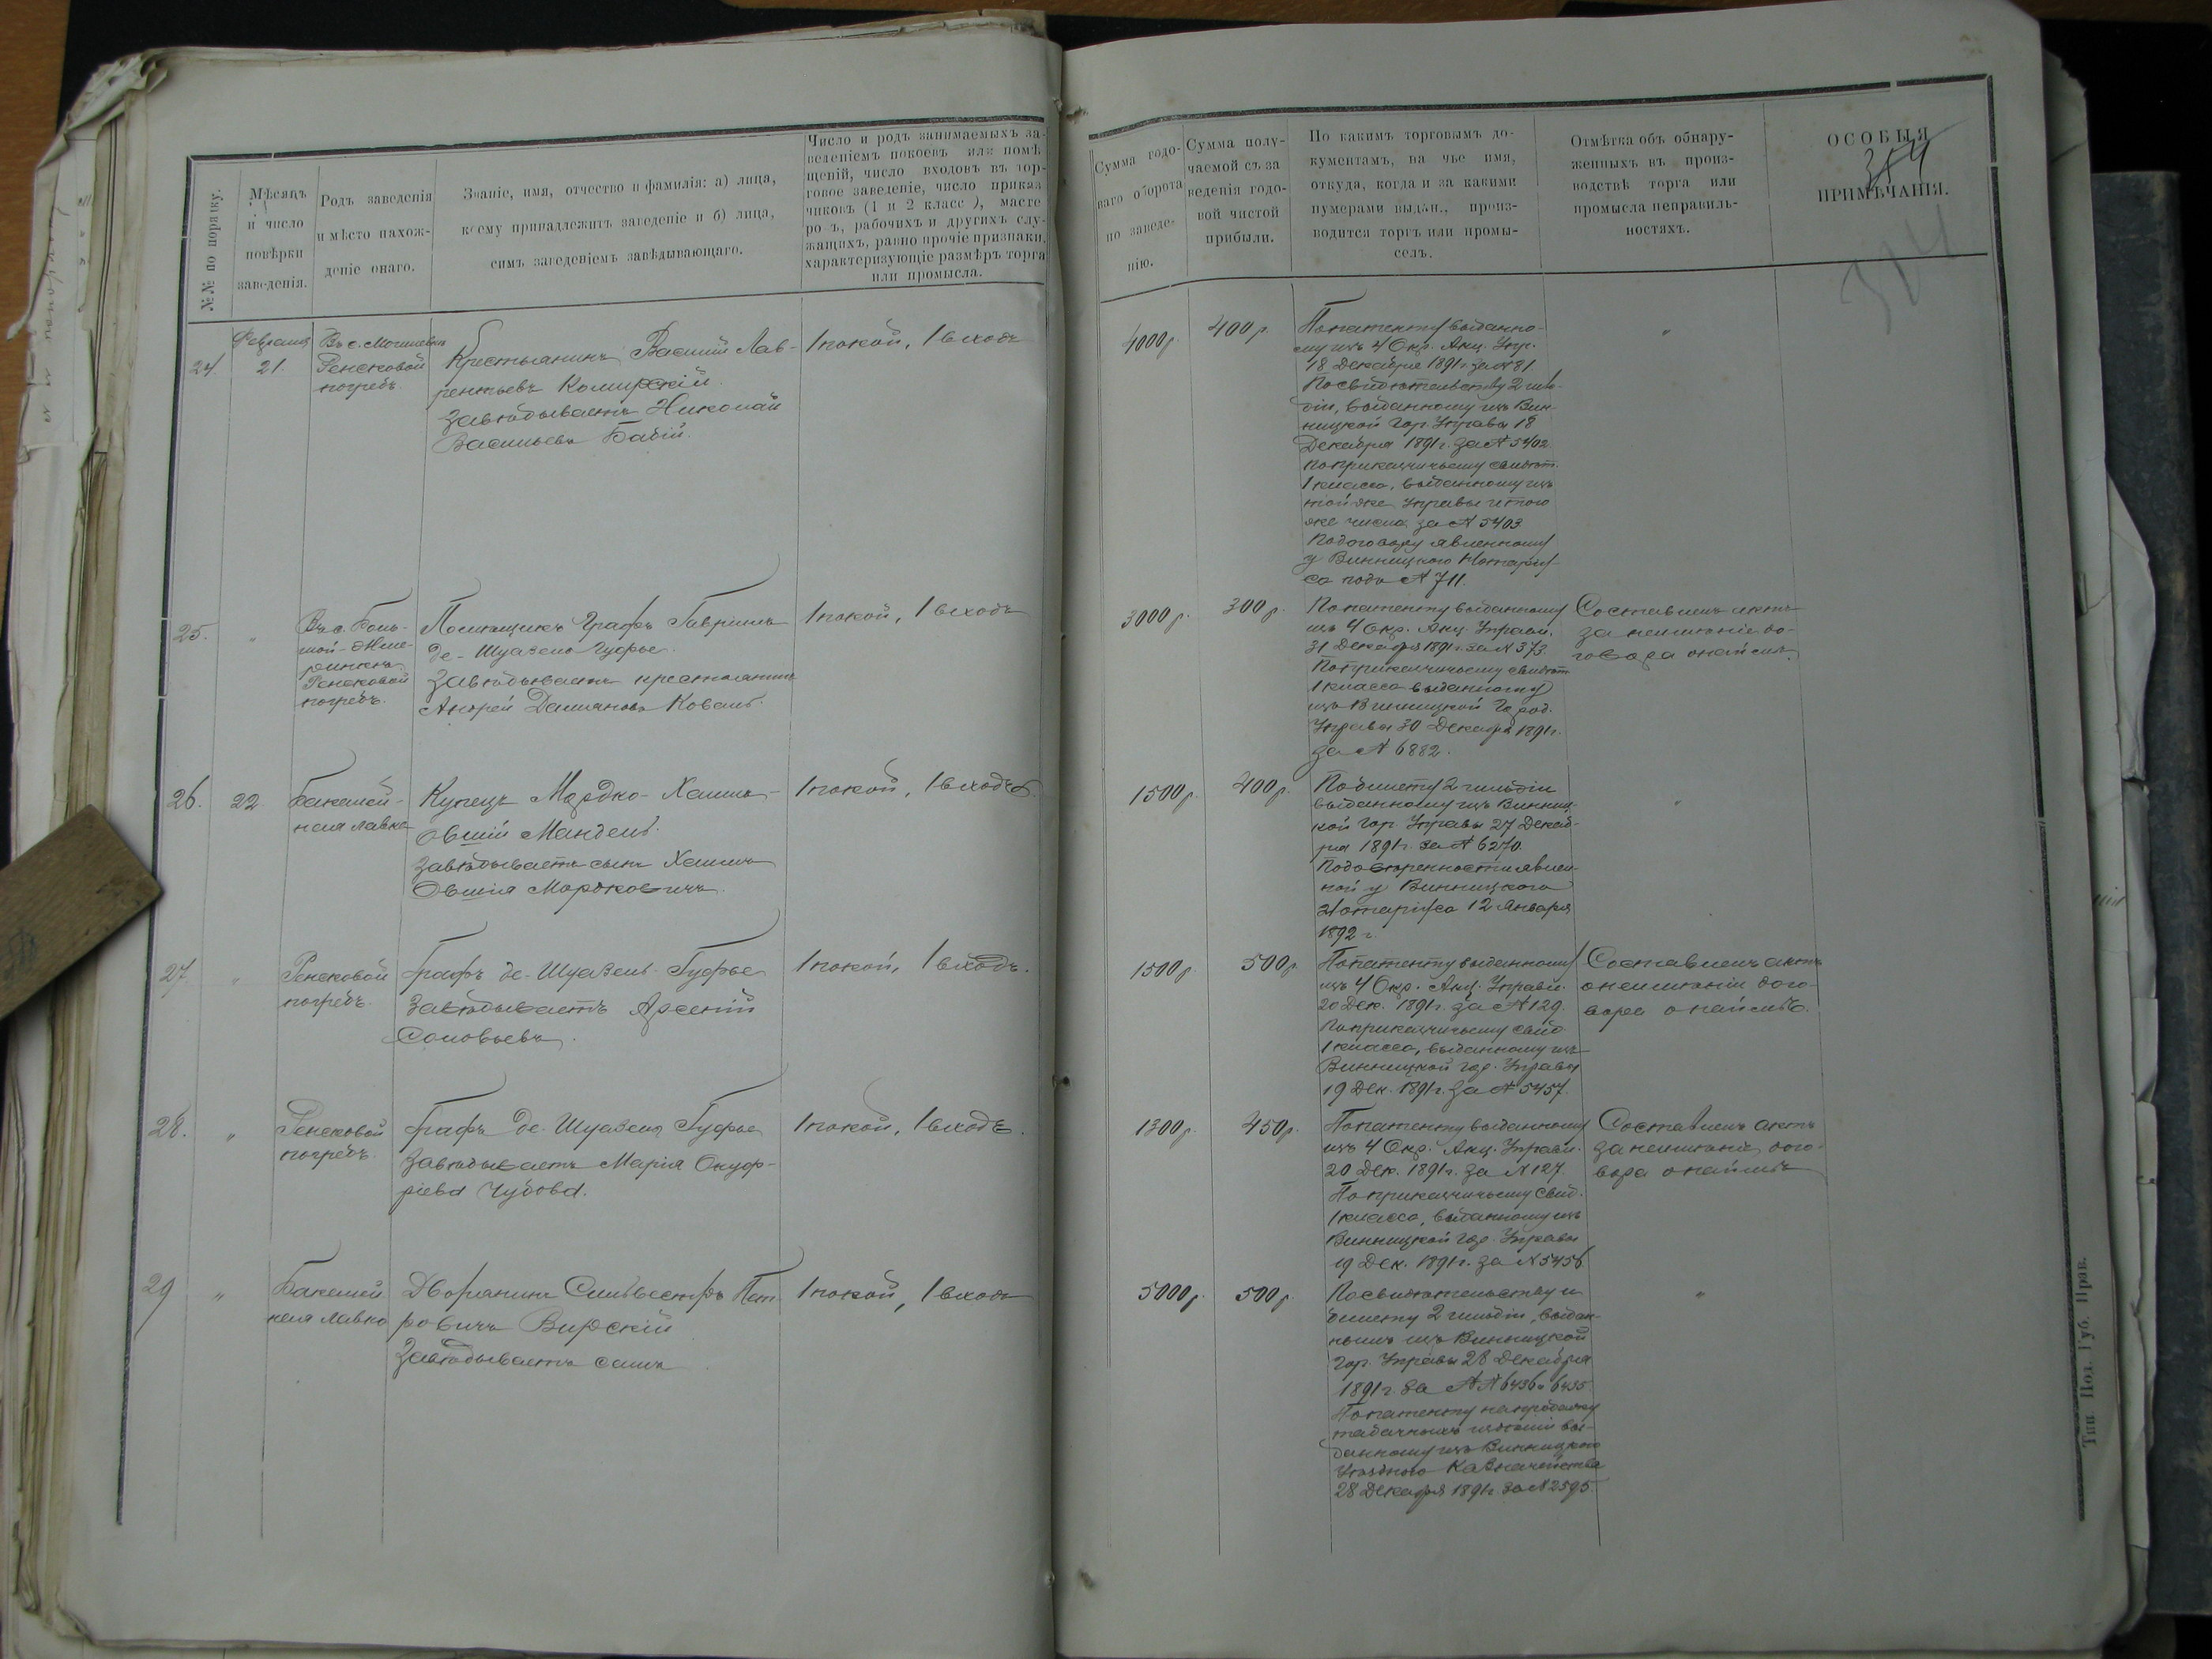 №№ по порядку.
Мѣсяцъ
и число
повѣрки
заведенія.
Родъ заведенія
и мѣсто нахож-
деніе онаго.
Званіе, имя, отчество и фамилія: а) лица,
коему принадлежитъ заведеніе и б) лица,
симъ заведеніемъ завѣдывающаго.
Число и родъ занимаемыхъ за-
веденіемъ покоевъ или помѣ
щеній, число входовъ въ тор-
говое заведеніе, число приказ
чиковъ (1 и 2 класс ), масте
ро ъ, рабочихъ и другихъ слу-
жащихъ, равно прочіе признаки,
характеризующіе размѣръ торга
или промысла.
Сумма годо-
ваго оборота
по заведе-
нію.
Сумма полу-
чаемой съ за
веденія годо-
вой чистой
прибыли.
По какимъ торговымъ до-
кументамъ, на чье имя,
откуда, когда и за какими
нумерами выдан., произ-
водится торгъ или промы-
селъ.
Отмѣтка объ обнару-
женныхъ въ произ-
водствѣ торга или
промысла неправиль-
ностяхъ.
ОСОБЫЯ
ПРИМѢЧАНІЯ.
314
24.
Февраля
21.
Въ с.
Ренсковой
погребъ.
Крестьянинъ Василій Лав-
рентьевъ
Завѣдываетъ Николай
Васильевъ Бабій.
1 покой, 1 входъ
4000 р.
400 р.
По патенту выданно-
му изъ 4 Окр. Акц. Упр.
18 Декабря 1891 г. за № 81
По свидѣтельству 2 гиль-
діи, выданному изъ Вин-
ницкой Гор. Управы 18
Декабря 1891 г. за № 5402.
По приказчичьему свидѣт.
1 класса, выданному изъ
той же Управы и того
же числа за № 5403
По договору явленному
у Винницкого Нотаріу-
са подъ № 711.
"
25.
"
Въ с. Боль-
шой-Жме-
ринкѣ
Ренсковой
погребъ.
Помѣщикъ Графъ Гавріилъ
де-Шуазель Гуфье.
Завѣдываетъ крестьянинъ
Андрей Даміановъ Коваль.
1 покой, 1 входъ
3000 р.
300 р.
По патенту выданному
изъ 4 Окр. Акц. Управл.
31 Декабря 1891 г. за № 373.
По приказчичьему свидѣт.
1 класса выданному
изъ Винницкой Город.
Управы 30 Декабря 1891 г.
за № 6882.
Составленъ актъ
за неимѣніе до-
говора о наймѣ.
26.
22
Бакалей-
ная лавка
Купецъ Мордко-Хаимъ-
Овшій Мандель.
Завѣдываетъ сынъ Хаимъ
Овшія Мордковичъ.
1 покой, 1 входъ.
1500 р.
400 р.
По билету 2 гильдіи
выданному изъ Винниц-
кой Гор. Управы 27 Декаб-
ря 1891 г. за № 6270.
По довѣренности явлен-
ной у Винницкого
Нотаріуса 12 Января
1892 г.
"
27.
"
Ренсковой
погребъ.
Графъ де-Шуазель-Гуфье
Завѣдываетъ Арсеній
Соловьевъ.
1 покой, 1 входъ.
1500 р.
500 р.
По патенту выданному
изъ 4 Окр. Акц. Управл.
20 Дек. 1891 г. за № 129.
По приказчичьему свид.
1 класса, выданному изъ
Винницкой гор. Управы
19 Дек. 1891 г. за № 5457.
Составленъ актъ
о неимѣніи дого-
вора о наймѣ.
28.
"
Ренсковой
погребъ.
Графъ де-Шуазель Гуфье
Завѣдываетъ Марія Онуф-
ріева Чубова.
1 покой, 1 входъ.
1300 р.
450 р.
По патенту выданному
изъ 4 Окр. Акц. Управл.
20 Дек. 1891 г. за № 127.
По приказчичьему свид.
1 класса, выданному изъ
Винницкой Гор. Управы
19 Дек. 1891 г. за № 5456
Составленъ актъ
за неимѣніе дого-
вора о наймѣ
29
"
Бакалей
ная лавка
Дворянинъ Сильвестръ Пет-
ровичъ Вирскій
Завѣдываетъ самъ
1 покой, 1 входъ
5000 р.
500 р.
По свидѣтельству и
билету 2 гильдіи, выдан-
нымъ изъ Винницкой
Гор. Управы 28 Декабря
1891 г. за №№ 6436 и 6435
По патенту на продажу
табачныхъ издѣлій вы-
данному изъ Винницкого
Уѣзднаго Казначейства
28 Декабря 1891 г. за № 2595.
"
Тип. Под. Губ. Прав.